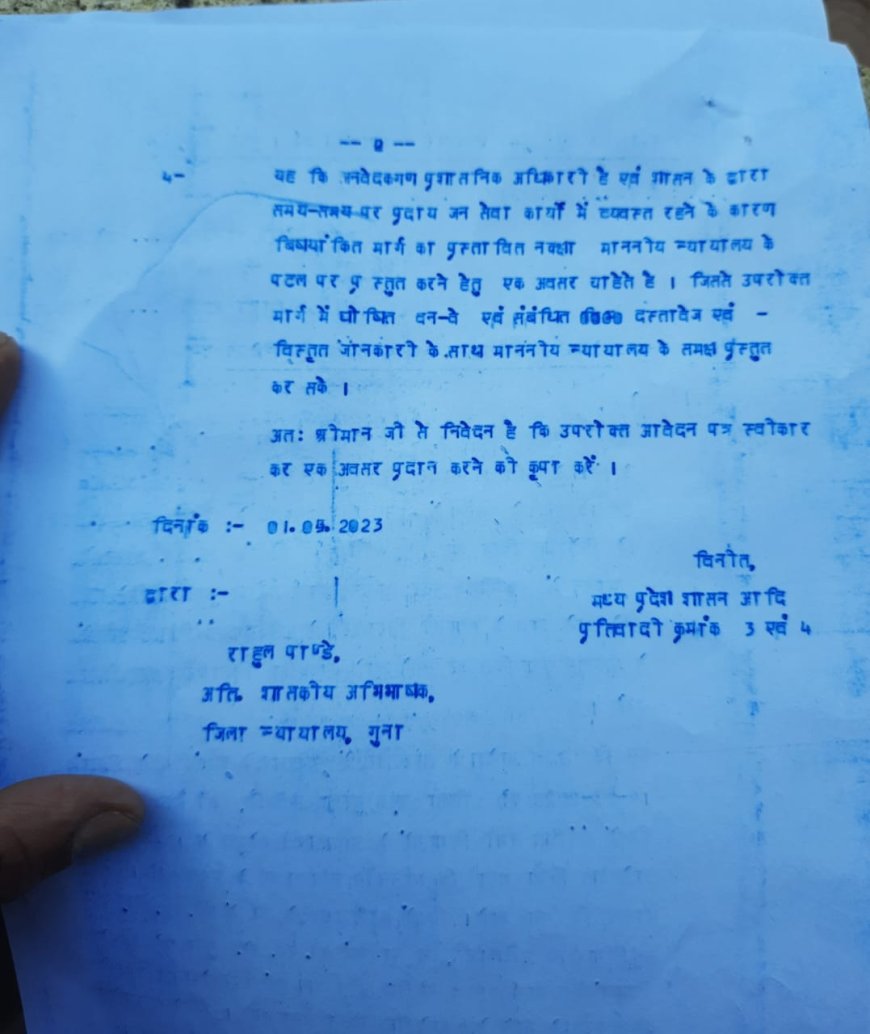 -- 2 --
4- यह कि अनवेदकगण प्रशासनिक अधिकारी है एवं शासन के द्वारा
समय-समय पर प्रदाय जन सेवा कार्यो में व्यवस्त रहने के कारण
बिषयांकित मार्ग का प्रस्तावित नक्शा माननीय न्यायालय के
पटल पर प्रस्तुत करने हेतु एक अवसर चाहेते है । जिससे उपरोक्त
मार्ग में घोषित वन-वे एवं संबंधित दस्तावेज एवं -
विस्तृत जानकारी के साथ माननीय न्यायालय के समक्ष प्रस्तुत
कर सके ।
अत: श्रीमान जी से निवेदन है कि उपरोक्त आवेदन पत्र स्वीकार
कर एक अवसर प्रदान करने की कृपा करें ।
दिनांक :- 01.05.2023
विनीत,
द्वारा :-
मध्य प्रदेश शासन आदि
प्रतिवादी क्रमांक 3 एवं 4
राहुल पाण्डे,
अति. शासकीय अभिभाषक,
जिला न्यायालय, गुना